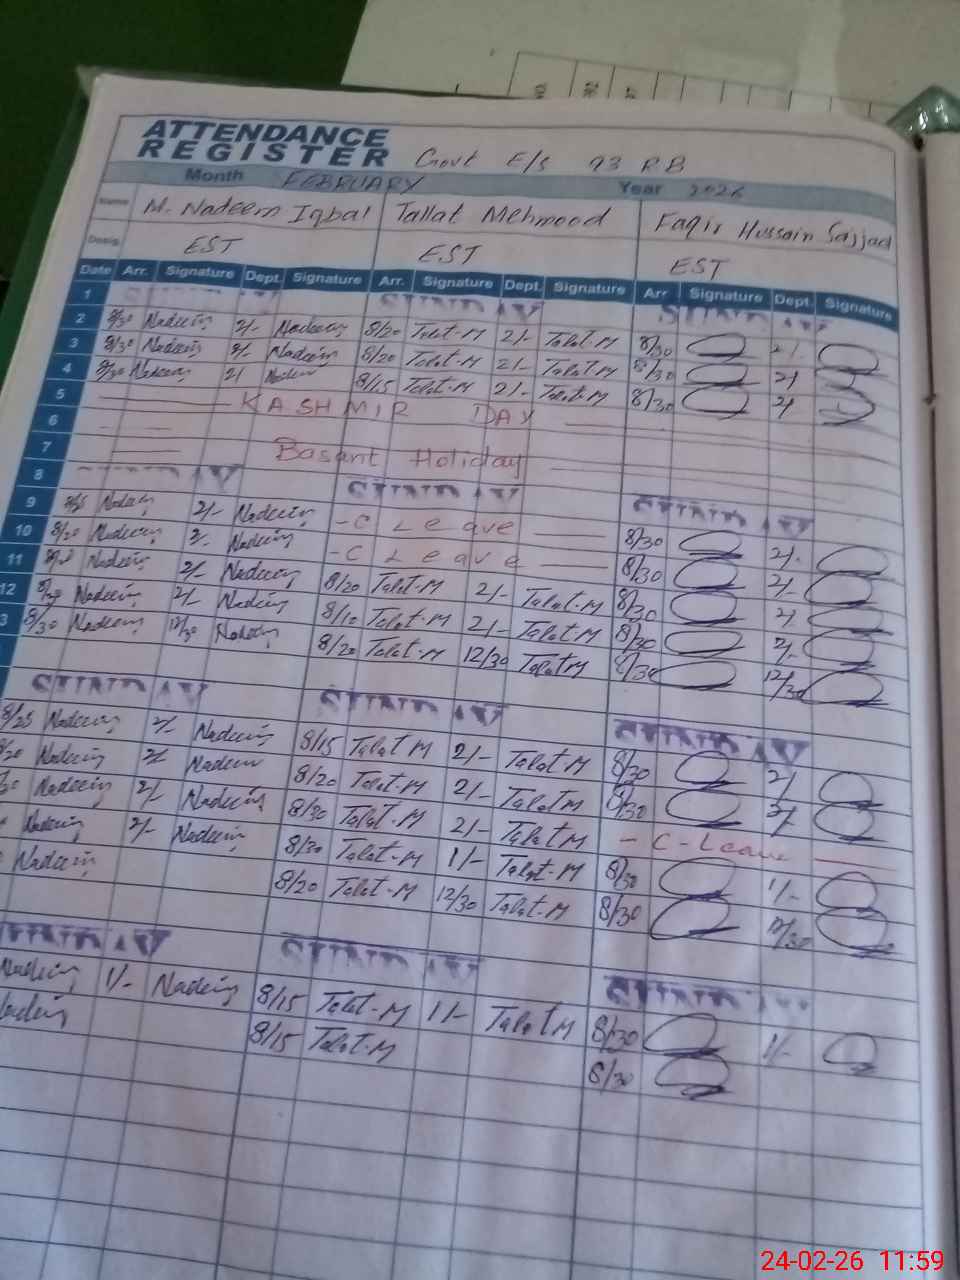 ATTENDANCE
REGISTER Govt E/S 93 RB
Month FEBRUARY Year 2026
Name M. Nadeem Iqbal Tallat Mehmood Faqir Hussain Sajjad
Desig. EST EST EST
Date Arr. Signature Dept. Signature Arr. Signature Dept. Signature Arr Signature Dept. Signature
1 SUNDAY SUNDAY SUNDAY
2 8/30 Nadeem 2/- Nadeem 8/20 Talat-M 2/- Talat M 8/30 2/-
3 8/30 Nadeem 2/- Nadeem 8/20 Talat-M 2/- Talat M 8/30 2/
4 8/30 Nadeem 2/ Nadeem 8/15 Talat-M 2/- Talat-M 8/30 2/
5 KASHMIR DAY
6
7 Basant Holiday
8 SUNDAY SUNDAY SUNDAY
9 Nadeem 2/- Nadeem - C Leave 8/30 2/-
10 8/20 Nadeem 2/- Nadeem - C Leave 8/30 2/-
11 Nadeem 2/- Nadeem 8/20 Talat-M 2/- Talat-M 8/30 2/
12 Nadeem 2/- Nadeem 8/10 Talat-M 2/- Talat M 8/30 2/-
3 8/30 Nadeem 12/30 Nadeem 8/20 Talat-M 12/30 Talat M 8/30 12/30
SUNDAY SUNDAY SUNDAY
8/25 Nadeem 2/- Nadeem 8/15 Talat M 2/- Talat M 8/30 2/
Nadeem 2/ Nadeem 8/20 Talat-M 2/- Talat M 8/30 2/-
Nadeem 2/- Nadeem 8/30 Talat-M 2/- Talat M - C-Leave
Nadeem 2/- Nadeem 8/30 Talat-M 1/- Talat-M 8/30 1/-
Nadeem 8/20 Talat-M 12/30 Talat-M 8/30 12/30
SUNDAY SUNDAY SUNDAY
Nadeem 1/- Nadeem 8/15 Talat-M 1/- Talat M 8/30 1/-
Nadeem 8/15 Talat-M 8/30
24-02-26 11:59